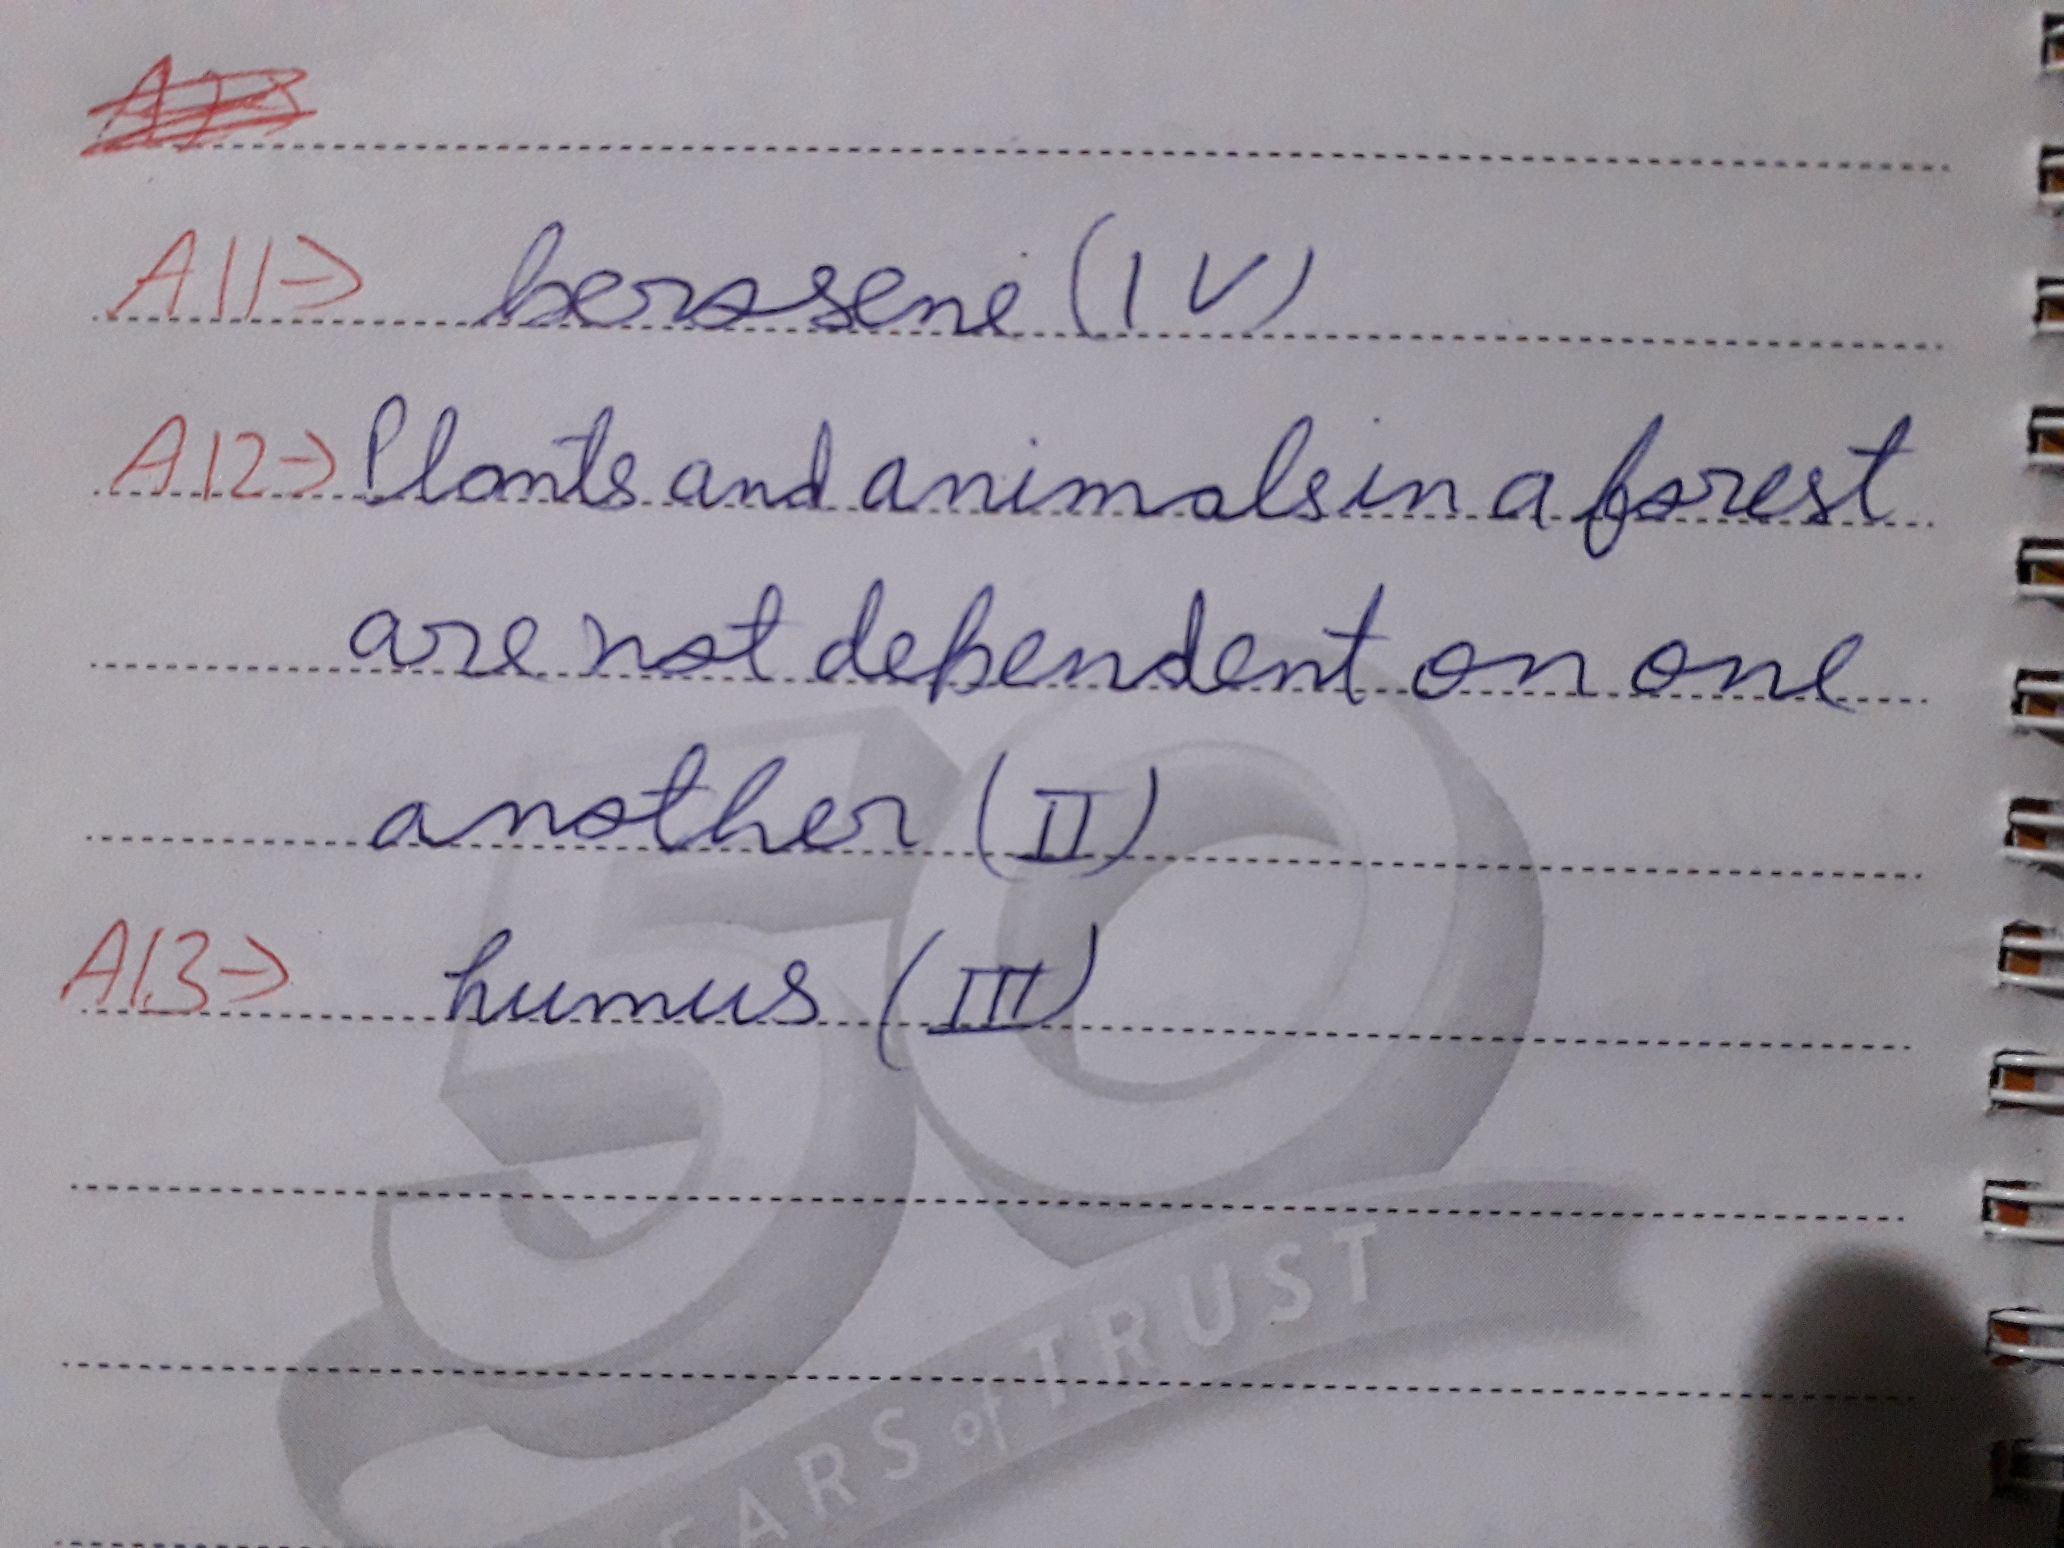 A11→ kerosene (IV)
A12→ Plants and animals in a forest
are not dependent on one
another (II)
A13→ humus (III)
50
EARS of TRUST